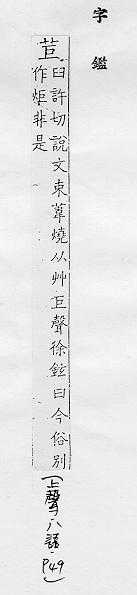 字鑑
苣 臼許切說文束葦燒从艸巨聲徐鉉曰今俗別
作炬非是
(上聲·八語·P49)